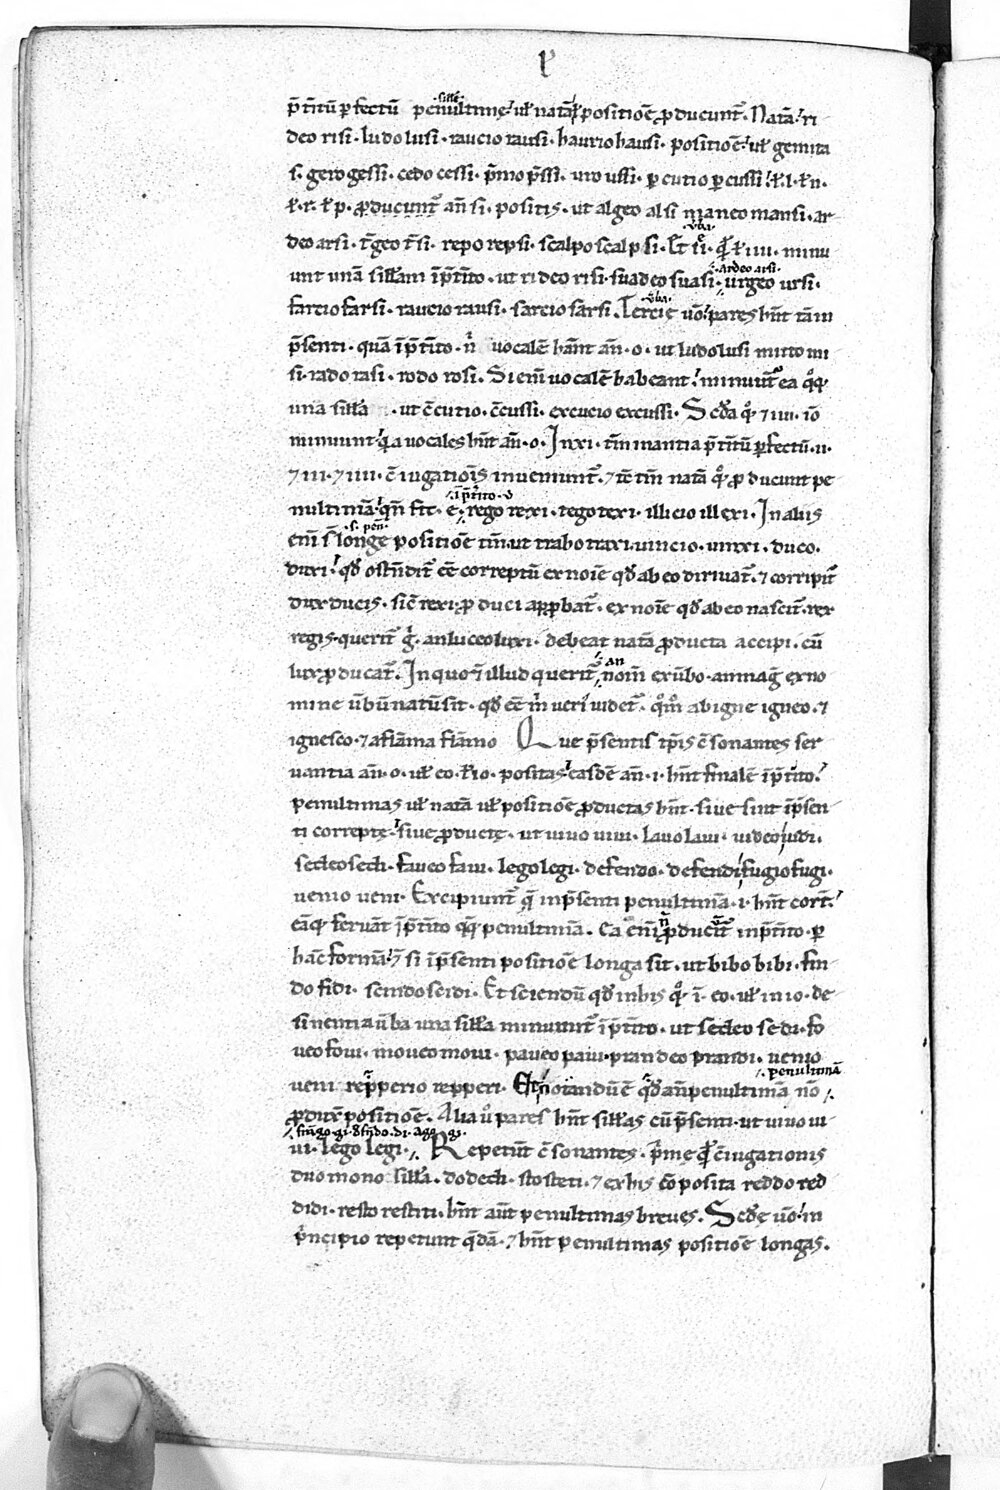 p̄t̄itū ꝑfectū penultimę. ul̄ natā ł positiōe ꝓducunt᷑. Natā. ri
sillē
deo risi. ludo lusi. raucio rausi. haurio hausi. positiōe. ul̄ gemita
s. gero gessi. cedo cessi. p̄mo p̄ssi. uro ussi. ꝑcutio ꝑcussi. ł. l. ł n.
ł. r. ł p. ꝓducunt᷑ an̄ si. positis. ut algeo alsi maneo mansi. ar
deo arsi. t̄geo t̄si. repo repsi. scalpo scalpsi. Et
ūba
iiii. minu
unt unā sillam ip̄t̄ito. ut rideo risi. suadeo suasi. urgeo ursi.
ardeo arsi.
farcio farsi. raucio rausi. sarcio sarsi. Tercię ūo. pares hn̄t tām
ūba
p̄senti. quā ip̄t̄ito. vocalē han̄t an̄. o. ut ludo lusi mitto mi
si. rado rasi. rodo rosi. Si eni vocalē habeant. minuūt ea
unā silla . ut c̄cutio. c̄cussi. excucio excussi. Scd̄a ⁊ iiii. iō
minuunt a vocales hn̄t an̄. o. In xi. tm̄ inantia p̄t̄itū ꝑfectū. ii.
⁊ iii. ⁊ iiii. c̄iugatiōis inueniunt᷑. ⁊ tc̄ tm̄ natā ꝓducunt pe
nultimā. qn̄ fit. e. rego rexi. tego texi. illicio illexi. In aliis
ip̄t̄ito. v
eni s̄ longe positiōe tm̄. ut traho traxi. uincio. uinxi. duco.
s. pen̄.
duxi. qd̄ ostn̄dit᷑ eē correptū ex noīe qd̄ ab eo diriuat᷑. ⁊ corripit᷑
dux ducis. sic̄ rexi ꝓduci apꝓbat᷑. ex noīe qd̄ ab eo nascit᷑. rex
regis. querit᷑ g̊. an luceo luxi. debeat natā ꝓducta accipi. cū
lux ꝓducat᷑. In quo ⁊ illud querit᷑ nom̄ ex ūbo. an mag̊ ex no
an
mine ūbū natū sit. qd̄ eē m̄ ueri videt᷑. ab igne igneo. ⁊
ignesco. ⁊ a flāma flāmo Que p̄sentis tp̄is c̄sonantes ser
uantia an̄. o. ul̄ eo. ł io. positas easdē an̄. i. hn̄t finalē ip̄t̄ito.
penultimas ul̄ natā ul̄ positiōe ꝓductas hn̄t. siue sint ip̄sen
ti correptę. siue ꝓductę. ut uiuo uiui. lauo laui. uideo uidi.
sedeo sedi. faueo faui. lego legi. defendo. defendi fugio fugi.
uenio ueni. Excipiunt᷑ in p̄senti penultimā. i. hn̄t cort̄.
eāq seruāt ip̄t̄ito penultimā. Ea eni ꝓducūt in p̄t̄ito. ꝑ
n̄
hāc formā. si ip̄senti positiōe longa sit. ut bibo bibi. fin
do fidi. scindo scidi. Et sciendū qd̄ in his i. eo. ul̄ in io. de
sinentia ūba una silla minuunt᷑ ip̄t̄ito. ut sedeo sedi. fo
ueo foui. moueo moui. paueo paui. prandeo prandi. uenio
ueni repꝑerio repperi. Et notandū ē qd̄ an̄penultimā nō
penultimā
ꝓducit positiōe. Alia u̅ pares hn̄t sillas cū p̄senti. ut uiuo ui
frāgo. gi. dfn̄do. di. ago. gi.
ui. lego legi. Repetūt c̄sonantes. p̄mę c̄iugationis
duo mono silla. do dedi. sto steti. ⁊ ex his cōposita reddo red
didi. resto restiti. hn̄t aūt penultimas breues. Scd̄ę ūo. in
p̄ncipio repetunt q̄dā. ⁊ hn̄t penultimas positiōe longas.